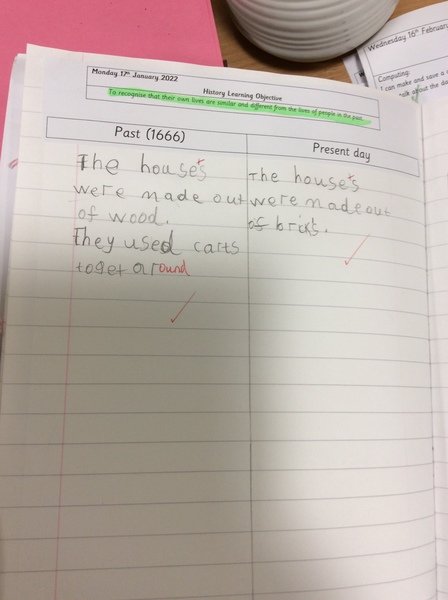 Wednesday 16th February
Computing:
I can make and save a
talk about the
Monday 17th January 2022
History Learning Objective
To recognise that their own lives are similar and different from the lives of people in the past.
Past (1666)
The houses
were made out
of wood.
They used carts
to get around
Present day
The houses
were made out
of bricks.